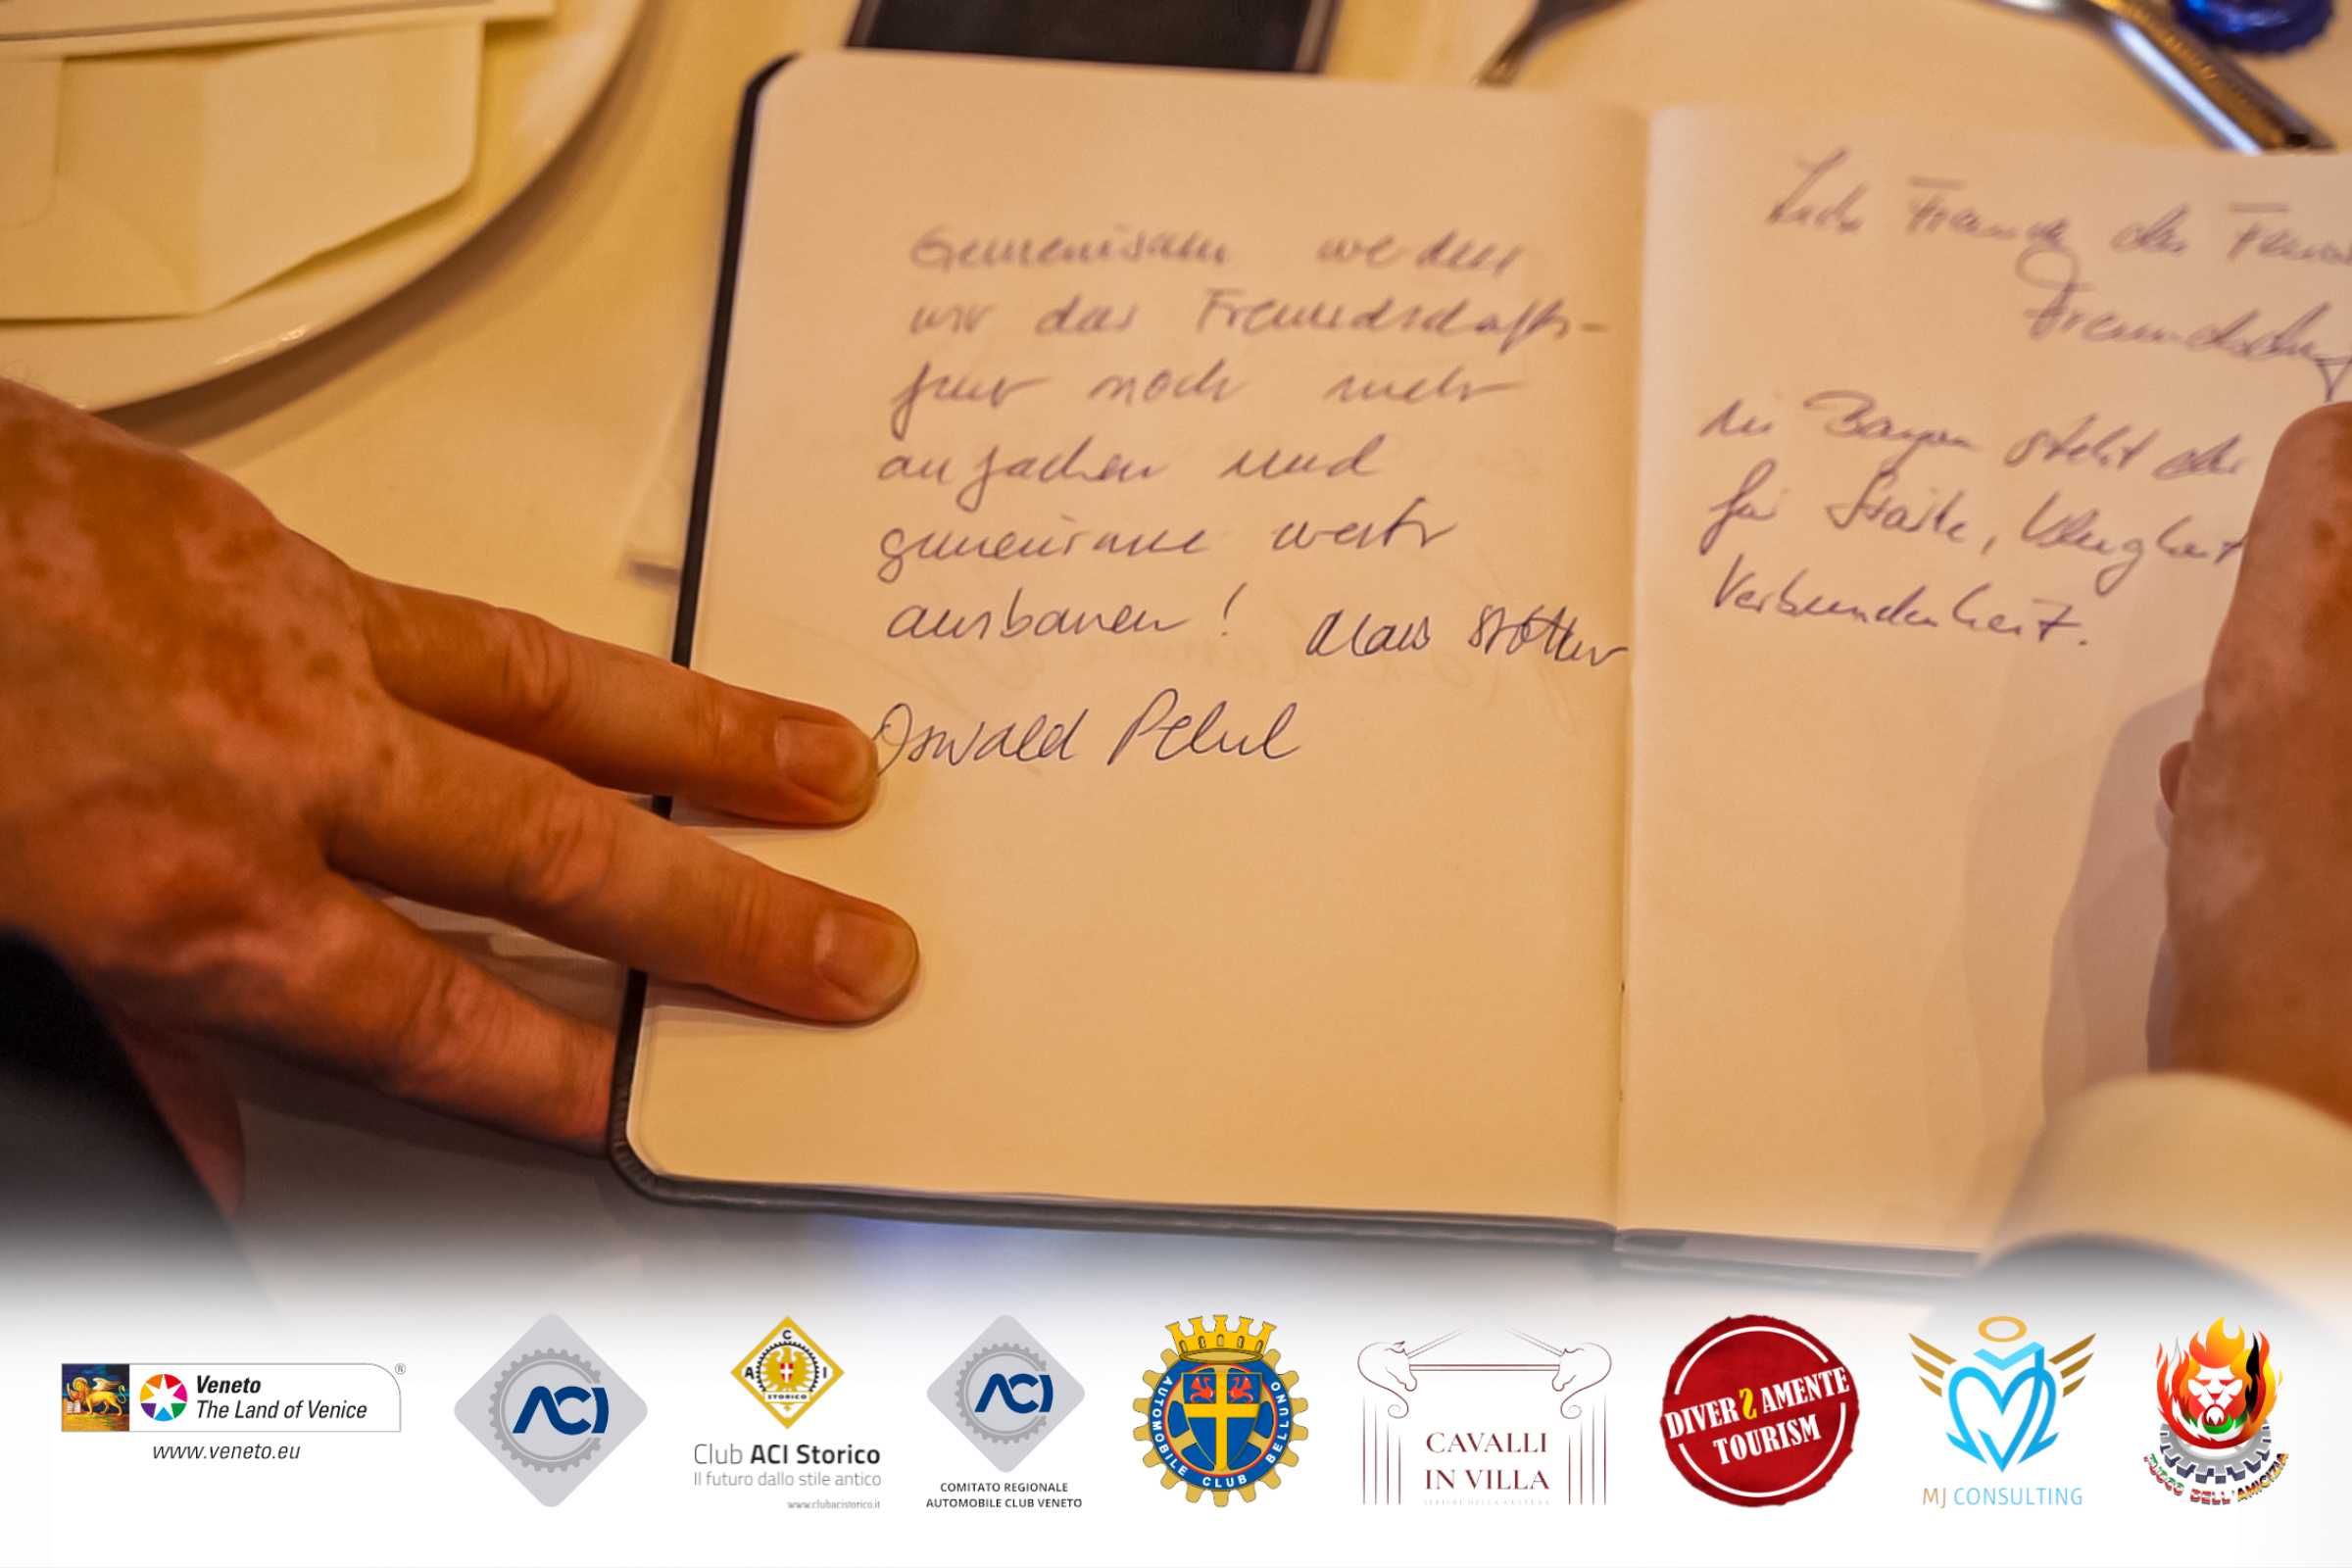 Gemeinsam werden
wir das Freundschafts-
feuer noch mehr
anfachen und
gemeinsam weiter
ausbauen! Klaus Stotter
Oswald
Liebe Freunde des
In Bayern steht der
für Stärke,
Verbundenheit.
Veneto
The Land of Venice
www.veneto.eu
ACI
ACI
STORICO
Club ACI Storico
Il futuro dallo stile antico
www.clubacistorico.it
ACI
COMITATO REGIONALE
AUTOMOBILE CLUB VENETO
AUTOMOBILE CLUB BELLUNO
CAVALLI
IN VILLA
DIVERSAMENTE
TOURISM
MJ CONSULTING
FUOCO DELL'AMICIZIA